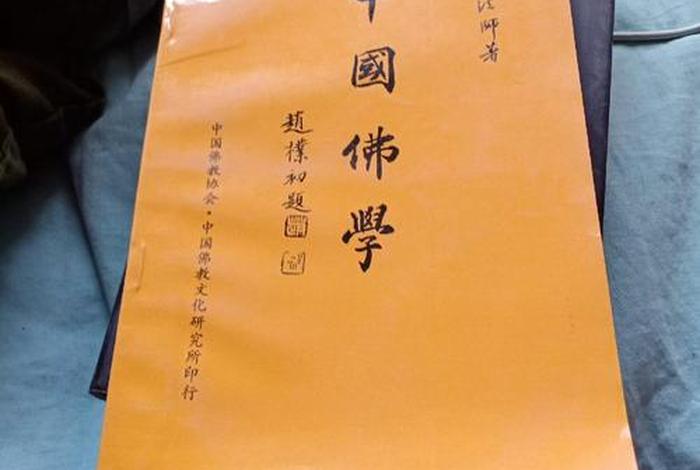 法师著
中國佛學
趙樸初題
中国佛教协会·中国佛教文化研究所印行